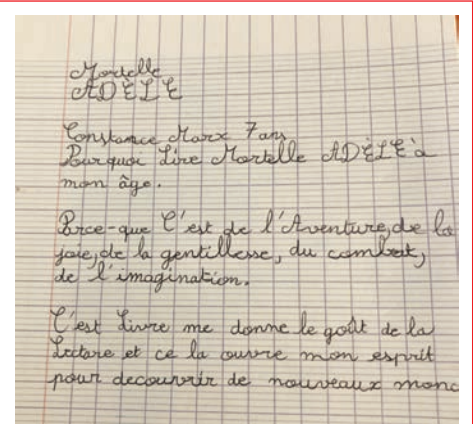 Mortelle
ADÈLE
Constance Marx 7 ans
Pourquoi Lire Mortelle ADÈLE à
mon âge.
Parce-que C'est de l'Aventure, de la
joie, de la gentillesse, du combat,
de l'imagination.
C'est Livre me donne le goût de la
Lecture et ce la ouvre mon esprit
pour decouvrir de nouveaux mond